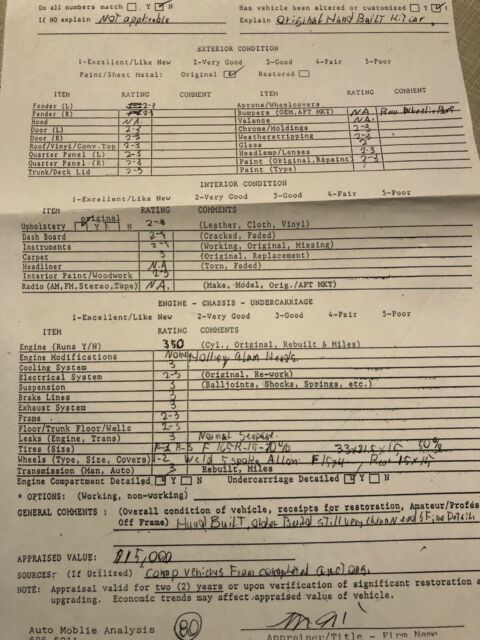 Do all numbers match Y N Has vehicle been altered or customized Y N
If NO explain Not applicable Explain Original Hand Built Kit car
EXTERIOR CONDITION
1-Excellent/Like New 2-Very Good 3-Good 4-Fair 5-Poor
Paint/Sheet Metal: Original Restored
ITEM RATING COMMENT ITEM RATING COMMENT
Fender (L) 2-3 Aprons/Wheelcovers
Fender (R) 2-3 Bumpers (OEM, AFT MKT) NA
Hood N.A. Valance NA.
Door (L) 2-3 Chrome/Moldings 2-3
Door (R) 2-3 Weatherstripping 2-3
Roof/Vinyl/Conv.Top 2-3 Glass
Quarter Panel (L) 2-3 Headlamp/Lenses 2-3
Quarter Panel (R) 2-3 Paint (Original, Repaint) 2-3
Trunk/Deck Lid 2-3 Paint (Type)
INTERIOR CONDITION
1-Excellent/Like New 2-Very Good 3-Good 4-Fair 5-Poor
ITEM original RATING COMMENTS
Upholstery Y N (Leather, Cloth, Vinyl)
Dash Board (Cracked, Faded)
Instruments (Working, Original, Missing)
Carpet 3 (Original, Replacement)
Headliner N.A (Torn, Faded)
Interior Paint/Woodwork 2-3
Radio (AM,FM,Stereo,Tape) N.A. (Make, Model, Orig./AFT MKT)
ENGINE - CHASSIS - UNDERCARRIAGE
1-Excellent/Like New 2-Very Good 3-Good 4-Fair 5-Poor
ITEM RATING COMMENTS
Engine (Runs Y/N) 350 (Cyl., Original, Rebuilt & Miles)
Engine Modifications None Holley Alum Heads.
Cooling System 3
Electrical System 2-3 (Original, Re-work)
Suspension 3 (Balljoints, Shocks, Springs, etc.)
Brake Lines 3
Exhaust System 3
Frame 2-3
Floor/Trunk Floor/Wells 2-3
Leaks (Engine, Trans) 3 Normal Seepage.
Tires (Size) F 165R-15-20% 50%
Wheels (Type, Size, Covers) 1-2 Weld 5 spoke Alloy F 15x4 Rear 15x15
Transmission (Man, Auto) 3 Rebuilt, Miles
Engine Compartment Detailed Y N Undercarriage Detailed Y N
* OPTIONS: (Working, non-working)
GENERAL COMMENTS : (Overall condition of vehicle, receipts for restoration, Amateur/Profes
Off Frame) Hand Built, older Build still very clean Needs Fine Detail
APPRAISED VALUE: $15,000
SOURCES: (If Utilized) Comp vehicles From auctions.
NOTE: Appraisal valid for two (2) years or upon verification of significant restoration a
upgrading. Economic trends may affect appraised value of vehicle.
Auto Moblie Analysis 80
Appraiser/Title - Firm Name